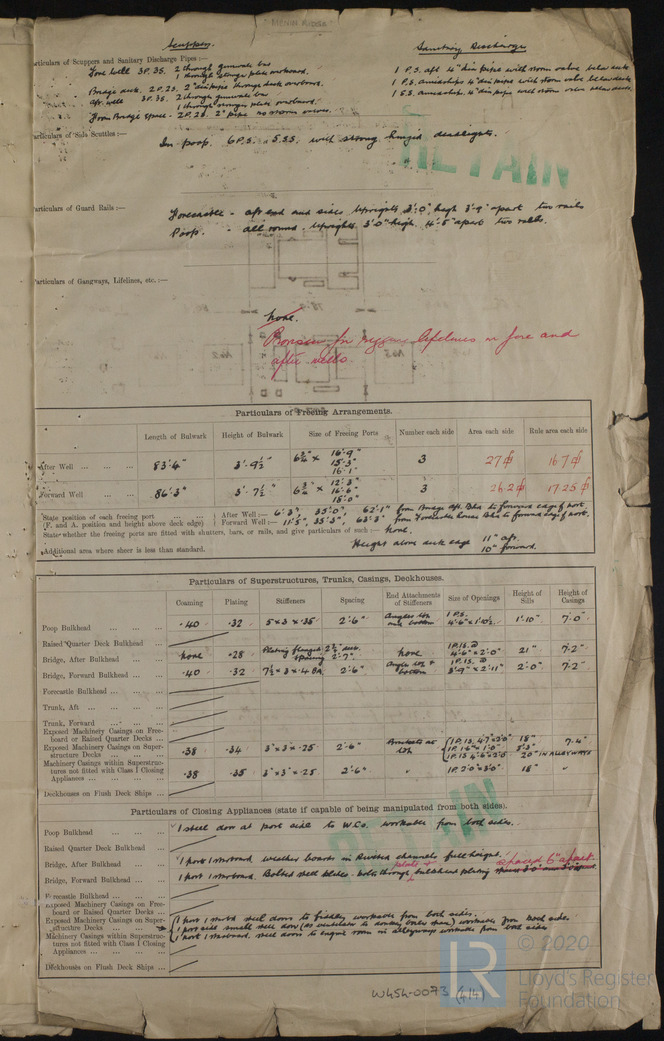 Scuppers. Sanctuary Discharge
Particulars of Scuppers and Sanitary Discharge Pipes :—
Fore Well 3P. 3S. 2 through gunwale bar
1 through stringer plate overboard.
Bridge deck. 2P. 2S. 2" dia pipes through deck overboard.
Aft well 3P. 3S. 2 through gunwale bar
1 through stringer plate overboard.
From Bridge Space - 2P. 2S. 2" pipe no storm valves.
1 P.S. aft 4" dia pipe with storm valve below deck
1 P.S. amidships 4" dia pipe with storm valve below deck
1 S.S. amidships 4" dia pipe with storm valve below deck
Particulars of Side Scuttles :—
In poop. 6 P.S. 5 S.S. with strong hinged deadlights.
RETAIN
Particulars of Guard Rails :—
Forecastle - aft end and sides uprights 3'-0" high 3'-9" apart two rails
Poop. - all round. uprights 3'0" high 4'-5" apart two rails.
Particulars of Gangways, Lifelines, etc. :—
None.
Provision for rigging lifelines in fore and
after wells.
Particulars of Freeing Arrangements.
Length of Bulwark Height of Bulwark Size of Freeing Ports Number each side Area each side Rule area each side
After Well 83'-4" 3'-9½" 6¾" × 16'-9" 15'-3" 16'-1" 3 27 16.7
Forward Well 86'-3" 3'-7½" 6¾" × 12'-3" 16'-6" 18'-0" 3 26.2 17.25
State position of each freeing port After Well :— 6'-3", 35'-0", 62'-1" from Bridge Aft. Bhd to forward edge of port.
(F. and A. position and height above deck edge) Forward Well :— 11'-5", 35'-3", 63'-3" from Forecastle Bhd to forward edge of port.
State whether the freeing ports are fitted with shutters, bars, or rails, and give particulars of such :— None.
Height above deck edge 11" aft.
10" forward.
Additional area where sheer is less than standard.
Particulars of Superstructures, Trunks, Casings, Deckhouses.
Coaming Plating Stiffeners Spacing End Attachments of Stiffeners Size of Openings Height of Sills Height of Casings
Poop Bulkhead .40 .32 5 × 3 × .35 2'-6" Angles top and bottom 1 P.S. 4'-6" × 1'-10½" 1'-10" 7'-0"
Raised Quarter Deck Bulkhead
Bridge, After Bulkhead None .28 Plating flanged 2½" spacing 2'-7" None 1P. 1S. @ 4'-6" × 2'-0" 21" 7'-2"
Bridge, Forward Bulkhead .40 .32 7½ × 3 × .40A 2'-6" Angle top & bottom 1P. 1S. @ 3'-9" × 2'-11" 2'-0" 7'-2"
Forecastle Bulkhead
Trunk, Aft
Trunk, Forward
Exposed Machinery Casings on Free-
board or Raised Quarter Decks
Exposed Machinery Casings on Super-
structure Decks .38 .34 3" × 3" × .25 2'-6" Brackets at top 1P. 1S. 4'-7" × 2'-0" 18" 7'-4"
1P. 1'-6" × 1'-0"
1P. 1S 4'-6" × 2'-5" 20" IN ALLEYWAYS
Machinery Casings within Superstruc-
tures not fitted with Class I Closing
Appliances .38 .35 3" × 3" × .25 2'-6" " 1P 2'-0" × 3'-0" 18" "
Deckhouses on Flush Deck Ships
Particulars of Closing Appliances (state if capable of being manipulated from both sides).
Poop Bulkhead 1 steel door at port side to W.Cs. workable from both sides.
Raised Quarter Deck Bulkhead
Bridge, After Bulkhead 1 port 1 starboard weather boards in riveted channels full height.
Bridge, Forward Bulkhead 1 port 1 starboard. Bolted steel plates - bolts through bulkhead plating plate & spaced 6" apart.
Forecastle Bulkhead
Exposed Machinery Casings on Free-
board or Raised Quarter Decks
Exposed Machinery Casings on Super-
structure Decks 1 port 1 starbd steel doors to fiddley workable from both sides.
1 port side small steel door (as ventilator to donkey boiler space) workable from both side.
1 port 1 starboard. steel doors to engine room in alleyways workable from both side
Machinery Casings within Superstruc-
tures not fitted with Class I Closing
Appliances
Deckhouses on Flush Deck Ships
RETAIN
W454-0073 (4/4)
LR
© 2020
Lloyd's Register
Foundation